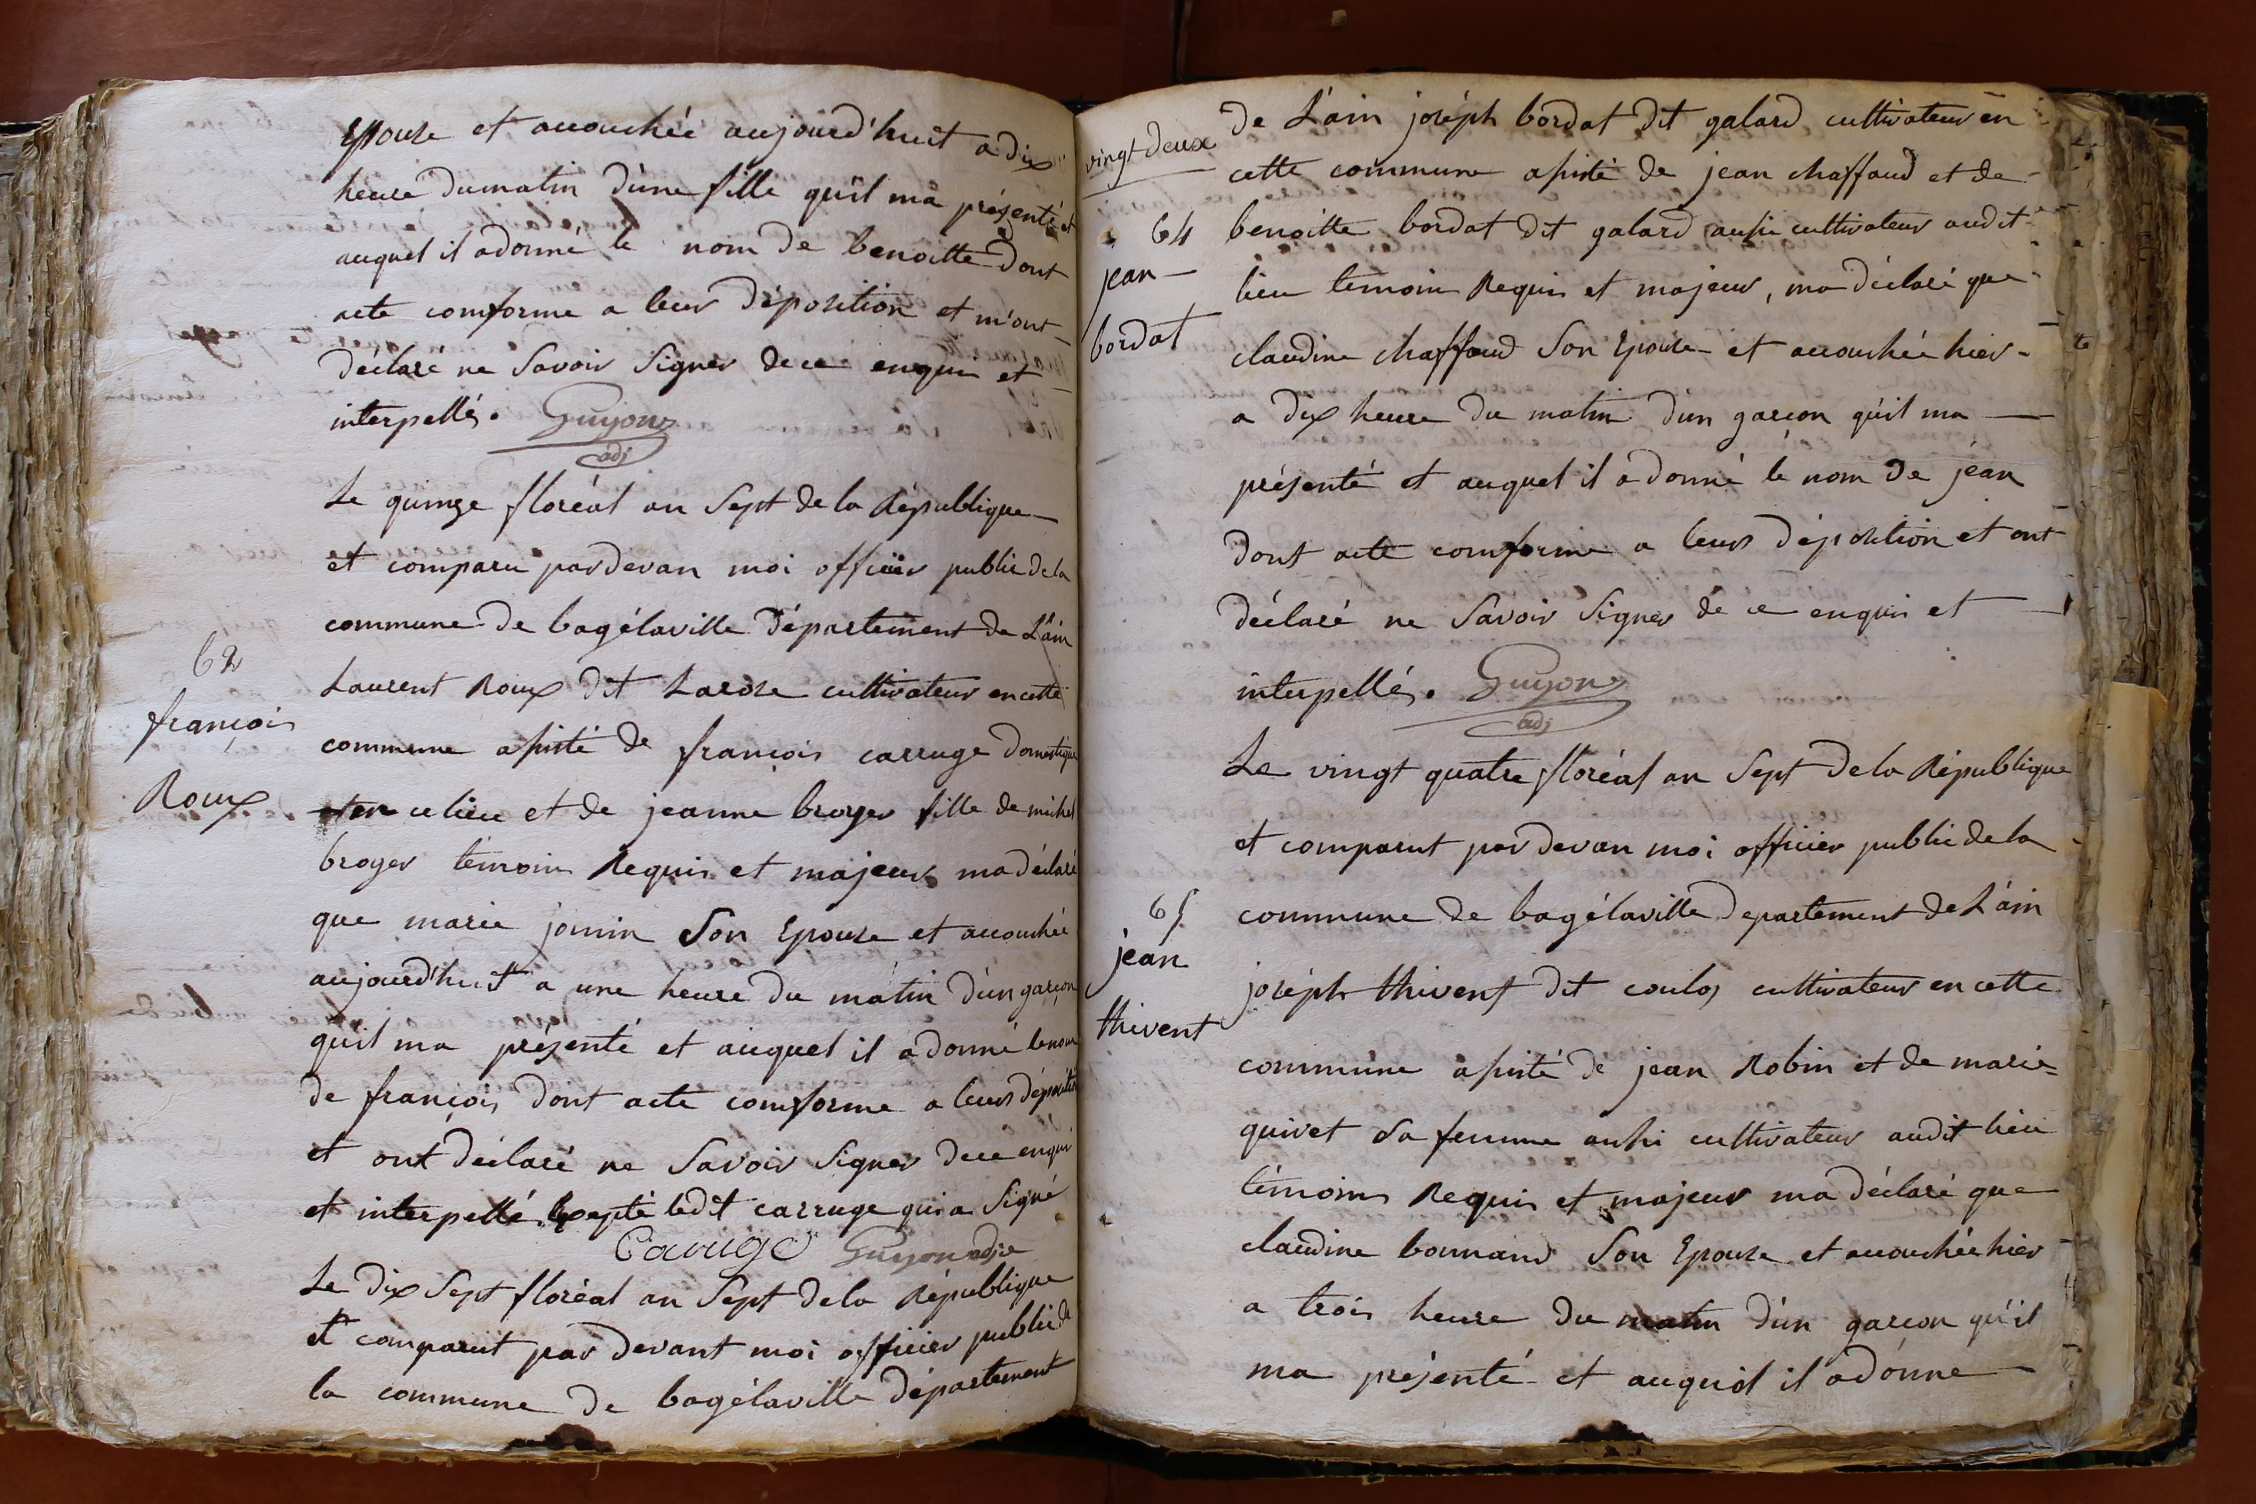 Epouse et accouchée aujourd'huit a dix
heure dumatin d'une fille qu'il ma présenté et
auquel il adonné le nom de benoitte dont
acte comforme a leur déposition et m'ont
déclaré ne Savoir Signer de ce enquis et
interpellés. Guyon
adj
Le quinze floréal an Sept de la République
et comparu pardevan moi officier public dela
commune de bagélaville département de L'ain
62
Laurent Roux dit Larose cultivateur encette
françois
commune asisté de françois carruge domestique
Roux
en ce lieu et de jeanne broyer fille de michel
broyer témoin Requis et majeurs ma déclaré
que marie jomin Son Epouse et accouchée
aujourd'huit a une heure du matin d'un garçon
qu'il ma présenté et auquel il adonné lenom
de françois dont acte comforme a leurs déposition
et ont déclaré ne Savoir Signer dece enqui
et interpellé Exepté ledit carruge qui a Signé
Caruge Guyon adj
Le dix Sept floréal an Sept dela République
et comparut par devant moi officier public de
la commune de bagélaville département
vingt deux
de L'ain joséph bordat dit galard cultivateur en
cette commune asisté de jean chaffaud et de
64
benoitte bordat dit galard ausi cultivateur audit
jean
lieu temoin Requis et majeur, ma déclaré que
bordat
claudine chaffaud Son Epouse et accouchée hier
a dix heure du matin d'un garçon qu'il ma
présenté et auquel il a donné le nom de jéan
dont acte comforme a leurs déposition et ont
déclaré ne Savoir Signer dé ce enquis et
interpellés. Guyon
adj
Le vingt quatre floréal an Sept dela République
et comparut par devan moi officier public dela
65
commune de bagélaville departement de L'ain
jean
joséph thivent dit coulos cultivateur en cette
thivent
commune asisté dé jean Robin et de marie
quivet Sa femme ausi cultivateur audit lieu
témoins Requis et majeur ma déclaré que
claudine bonnand Son Epouse et accouchée hier
a trois heure du matin d'un garçon qu'il
ma présenté et auquel il adonne